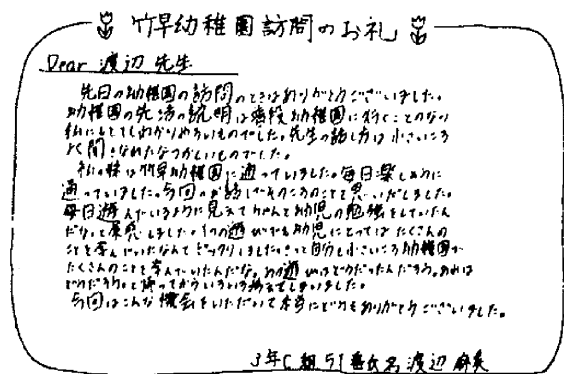 竹早幼稚園訪問のお礼
Dear 渡辺 先生
先日の幼稚園の訪問のときはありがとうございました。
幼稚園の先生の説明は普段幼稚園に行くことのない
私にもとてもわかりやすいものでした。先生の話し方は小さいころ
よく聞きなれたなつかしいものでした。
私の妹は竹早幼稚園に通っていました。毎日楽しそうに
通っていました。今回のお話しでそのころのことを思いだしました。
毎日遊んでいるように見えてちゃんと幼児の勉強をしていたん
だなと実感しました。1つの遊びでも幼児にとってはたくさんの
ことを学んでいたなんてビックリしました。きっと自分も小さいころ幼稚園で
たくさんのことを学んでいたんだな。あの遊びはどうだったんだろう。あれは
どうだろう。と帰ってからいろいろ考えてしまいました。
今回はこんな機会をいただいて本当にどうもありがとうございました。
3年C組51番氏名 渡辺 麻美